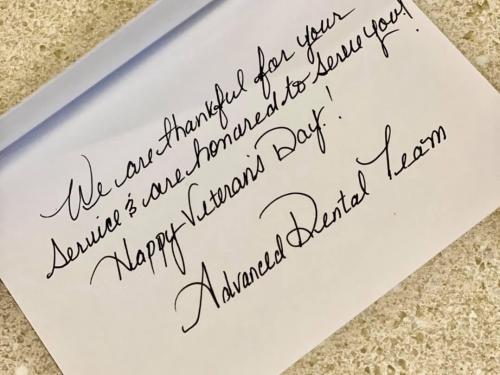 We are thankful for your
service & are honored to serve you!
Happy Veteran's Day!
Advanced Dental Team